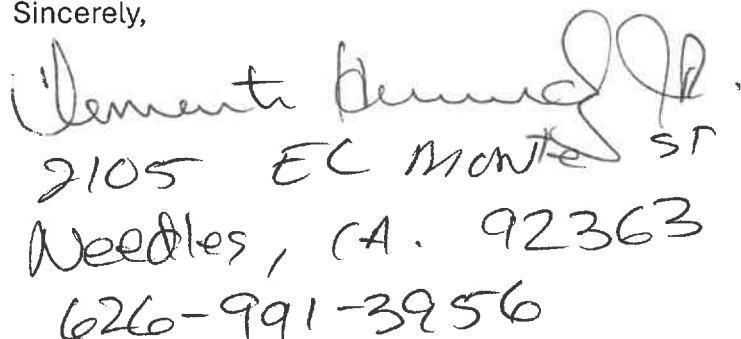 Sincerely,
Clemente Jr.
2105 El Monte ST
Needles, CA. 92363
626-991-3956